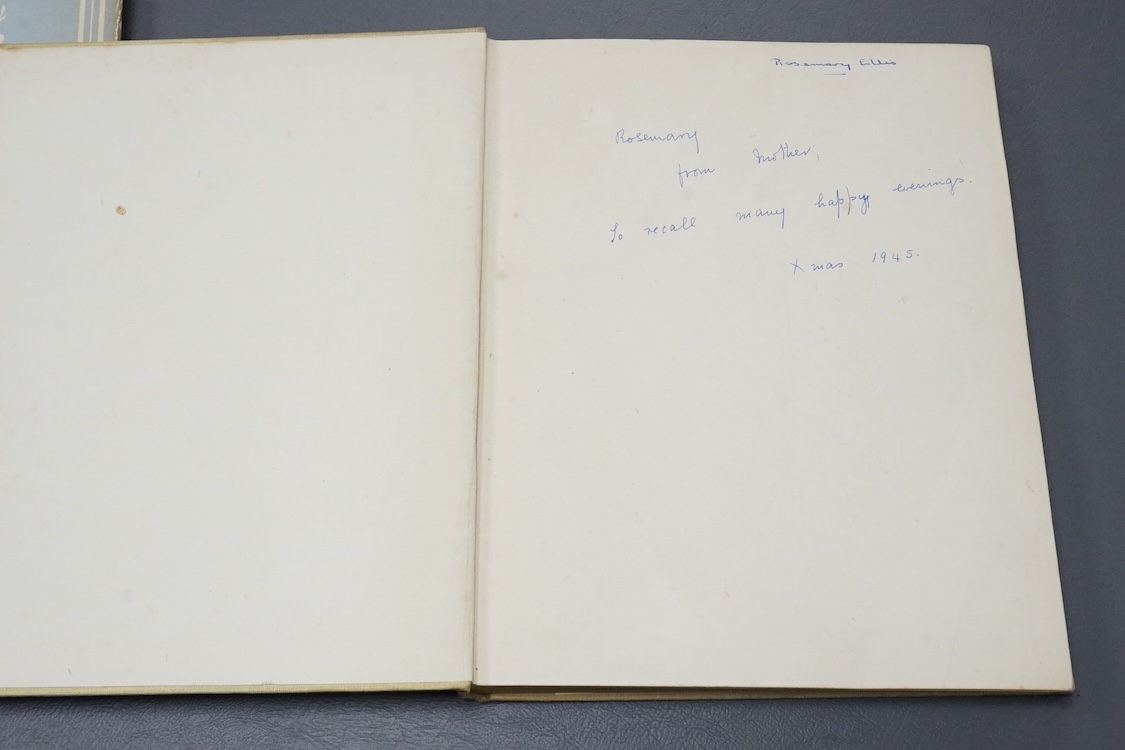 Rosemary Ellis
Rosemary
from Mother,
To recall many happy evenings.
Xmas 1945.